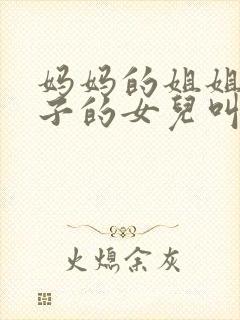 妈妈的姐姐
子的女兒叫
火熄余灰